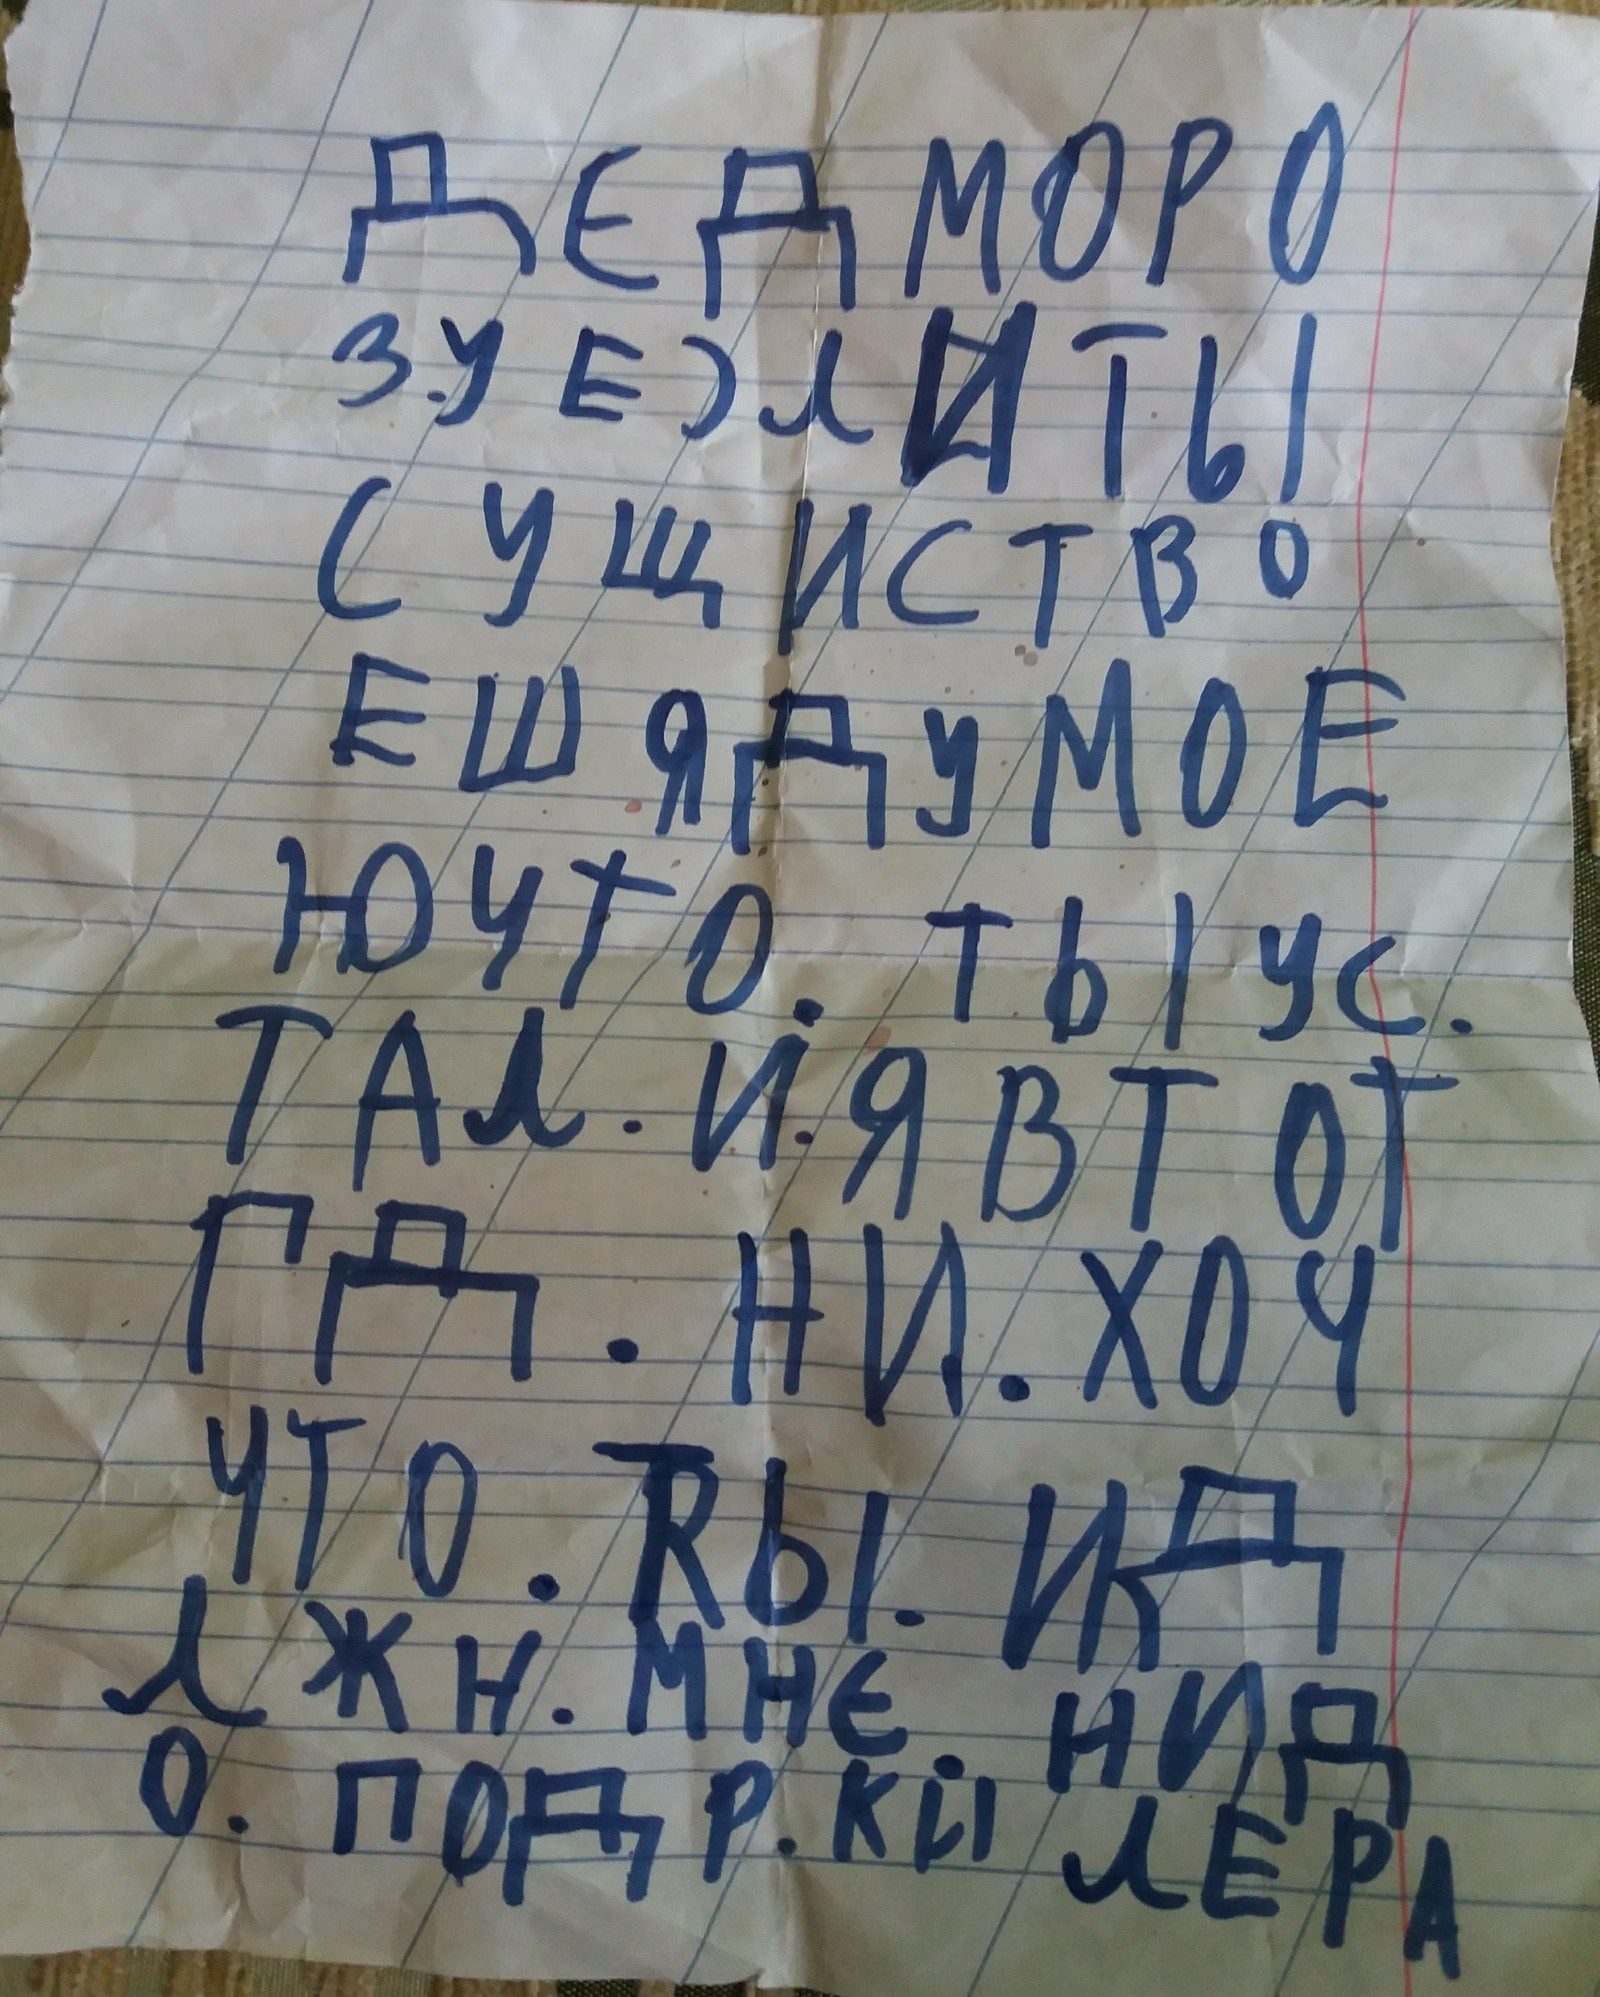 ДЕД МОРО
З.У ЕЭЛИ ТЫ
СУЩИСТВО
ЕШ Я ДУМОЕ
Ю ЧТО. ТЫ УС.
ТАЛ. И. Я В ТОТ
ГД. НИ. ХОЧ
ЧТО. ТЫ. ИД
ЛЖН. МНЕ НИД
О. ПОДР.КЫ ЛЕРА